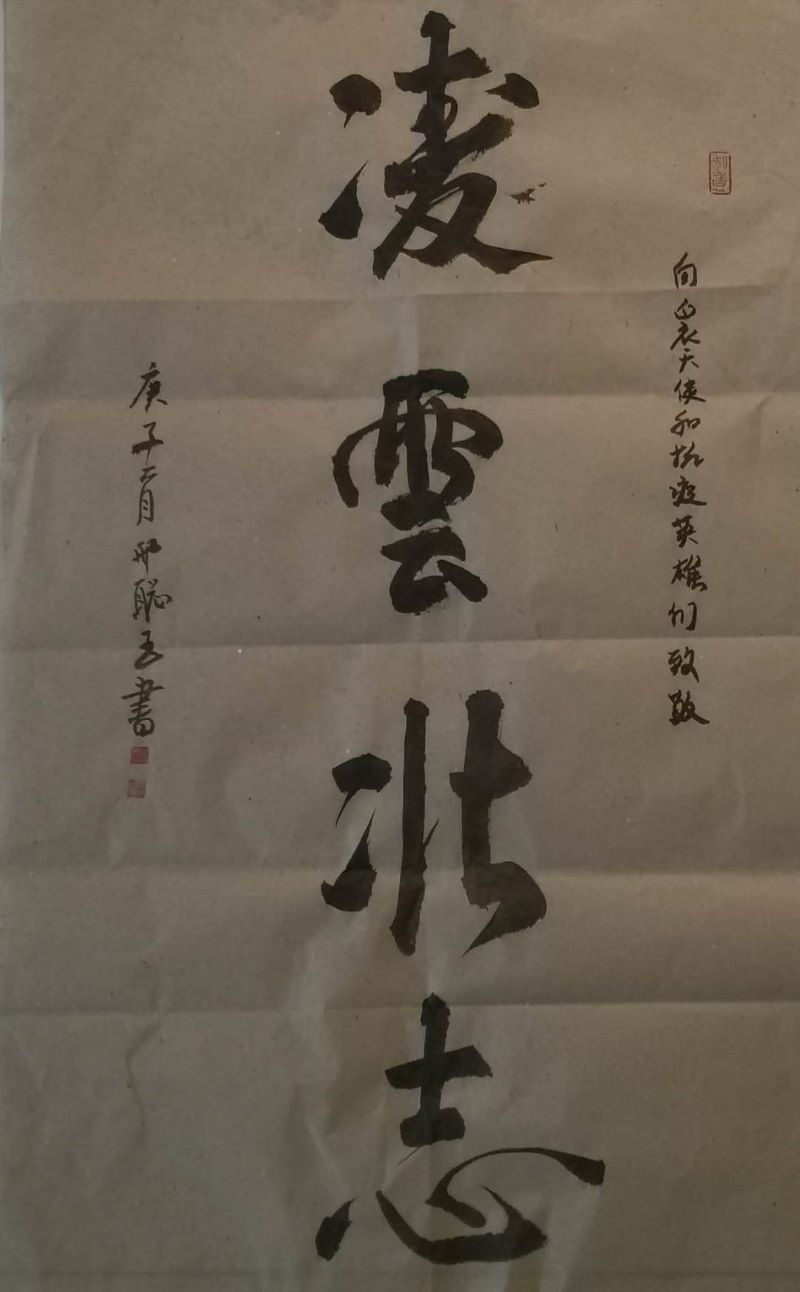 向白衣天使和抗疫英雄们致敬
凌雲壮志
庚子二月邢聪玉書